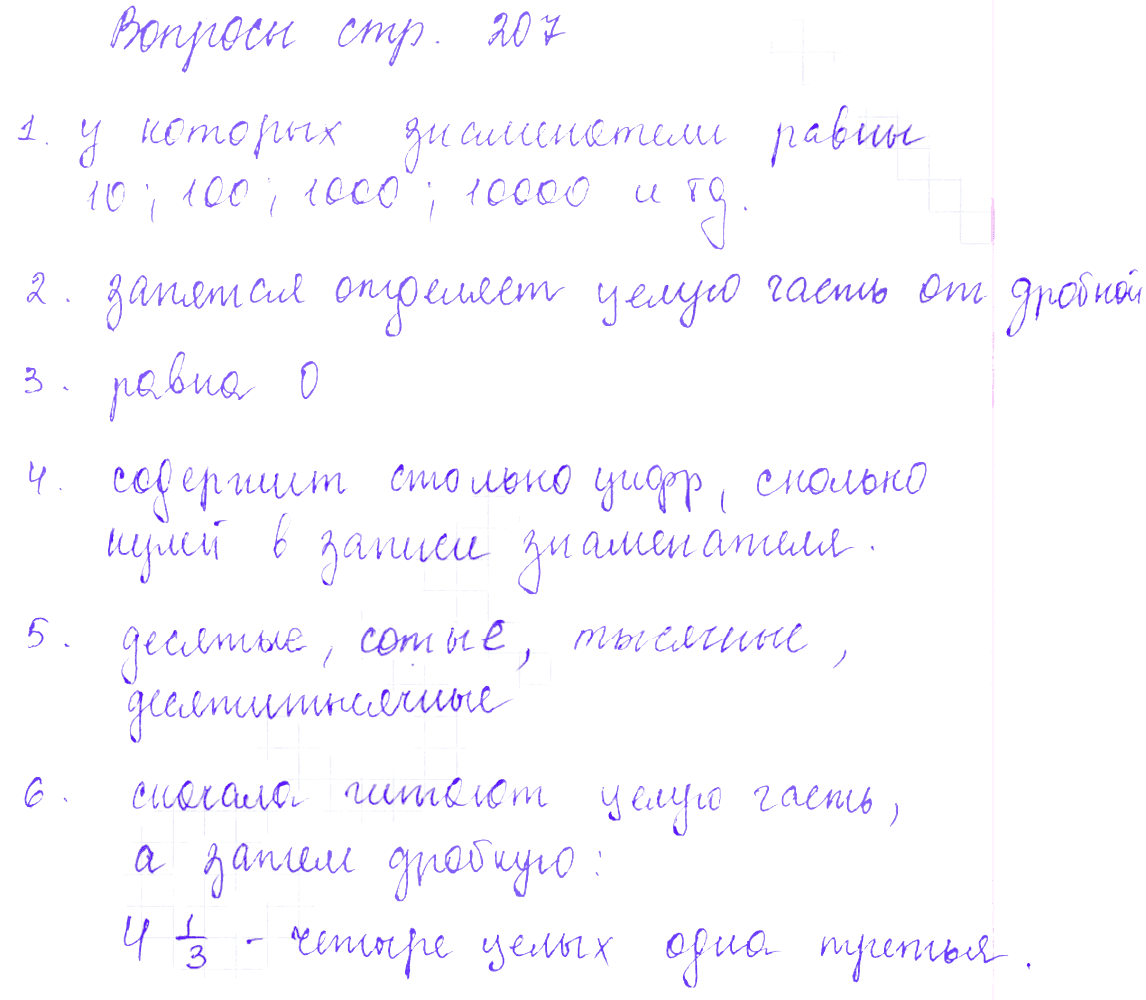 Вопросы стр. 207
1. у которых знаменатели равны
10; 100; 1000; 10000 и тд.
2. запятая отделяет целую часть от дробной
3. равна 0
4. содержит столько цифр, сколько
нулей в записи знаменателя.
5. десятые, сотые, тысячные,
десятитысячные
6. сначала читают целую часть,
а затем дробную:
4 1/3 - четыре целых одна третья.